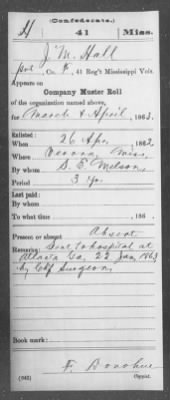 (Confederate.)
H 41 Miss.
J. M. Hall
Pvt, Co. K, 41 Reg't Mississippi Vols.
Appears on
Company Muster Roll
of the organization named above,
for March & April, 1863.
Enlisted:
When 26 Apr, 1862.
Where Verona, Miss,
By whom S. E. Melson,
Period 3 yr.
Last paid:
By whom
To what time , 186 .
Present or absent Absent
Remarks: Sent to hospital at
Atlanta Ga, 22 Jan, 1863
by Chf Surgeon.
Book mark:
F. Donohue
(642) Copyist.